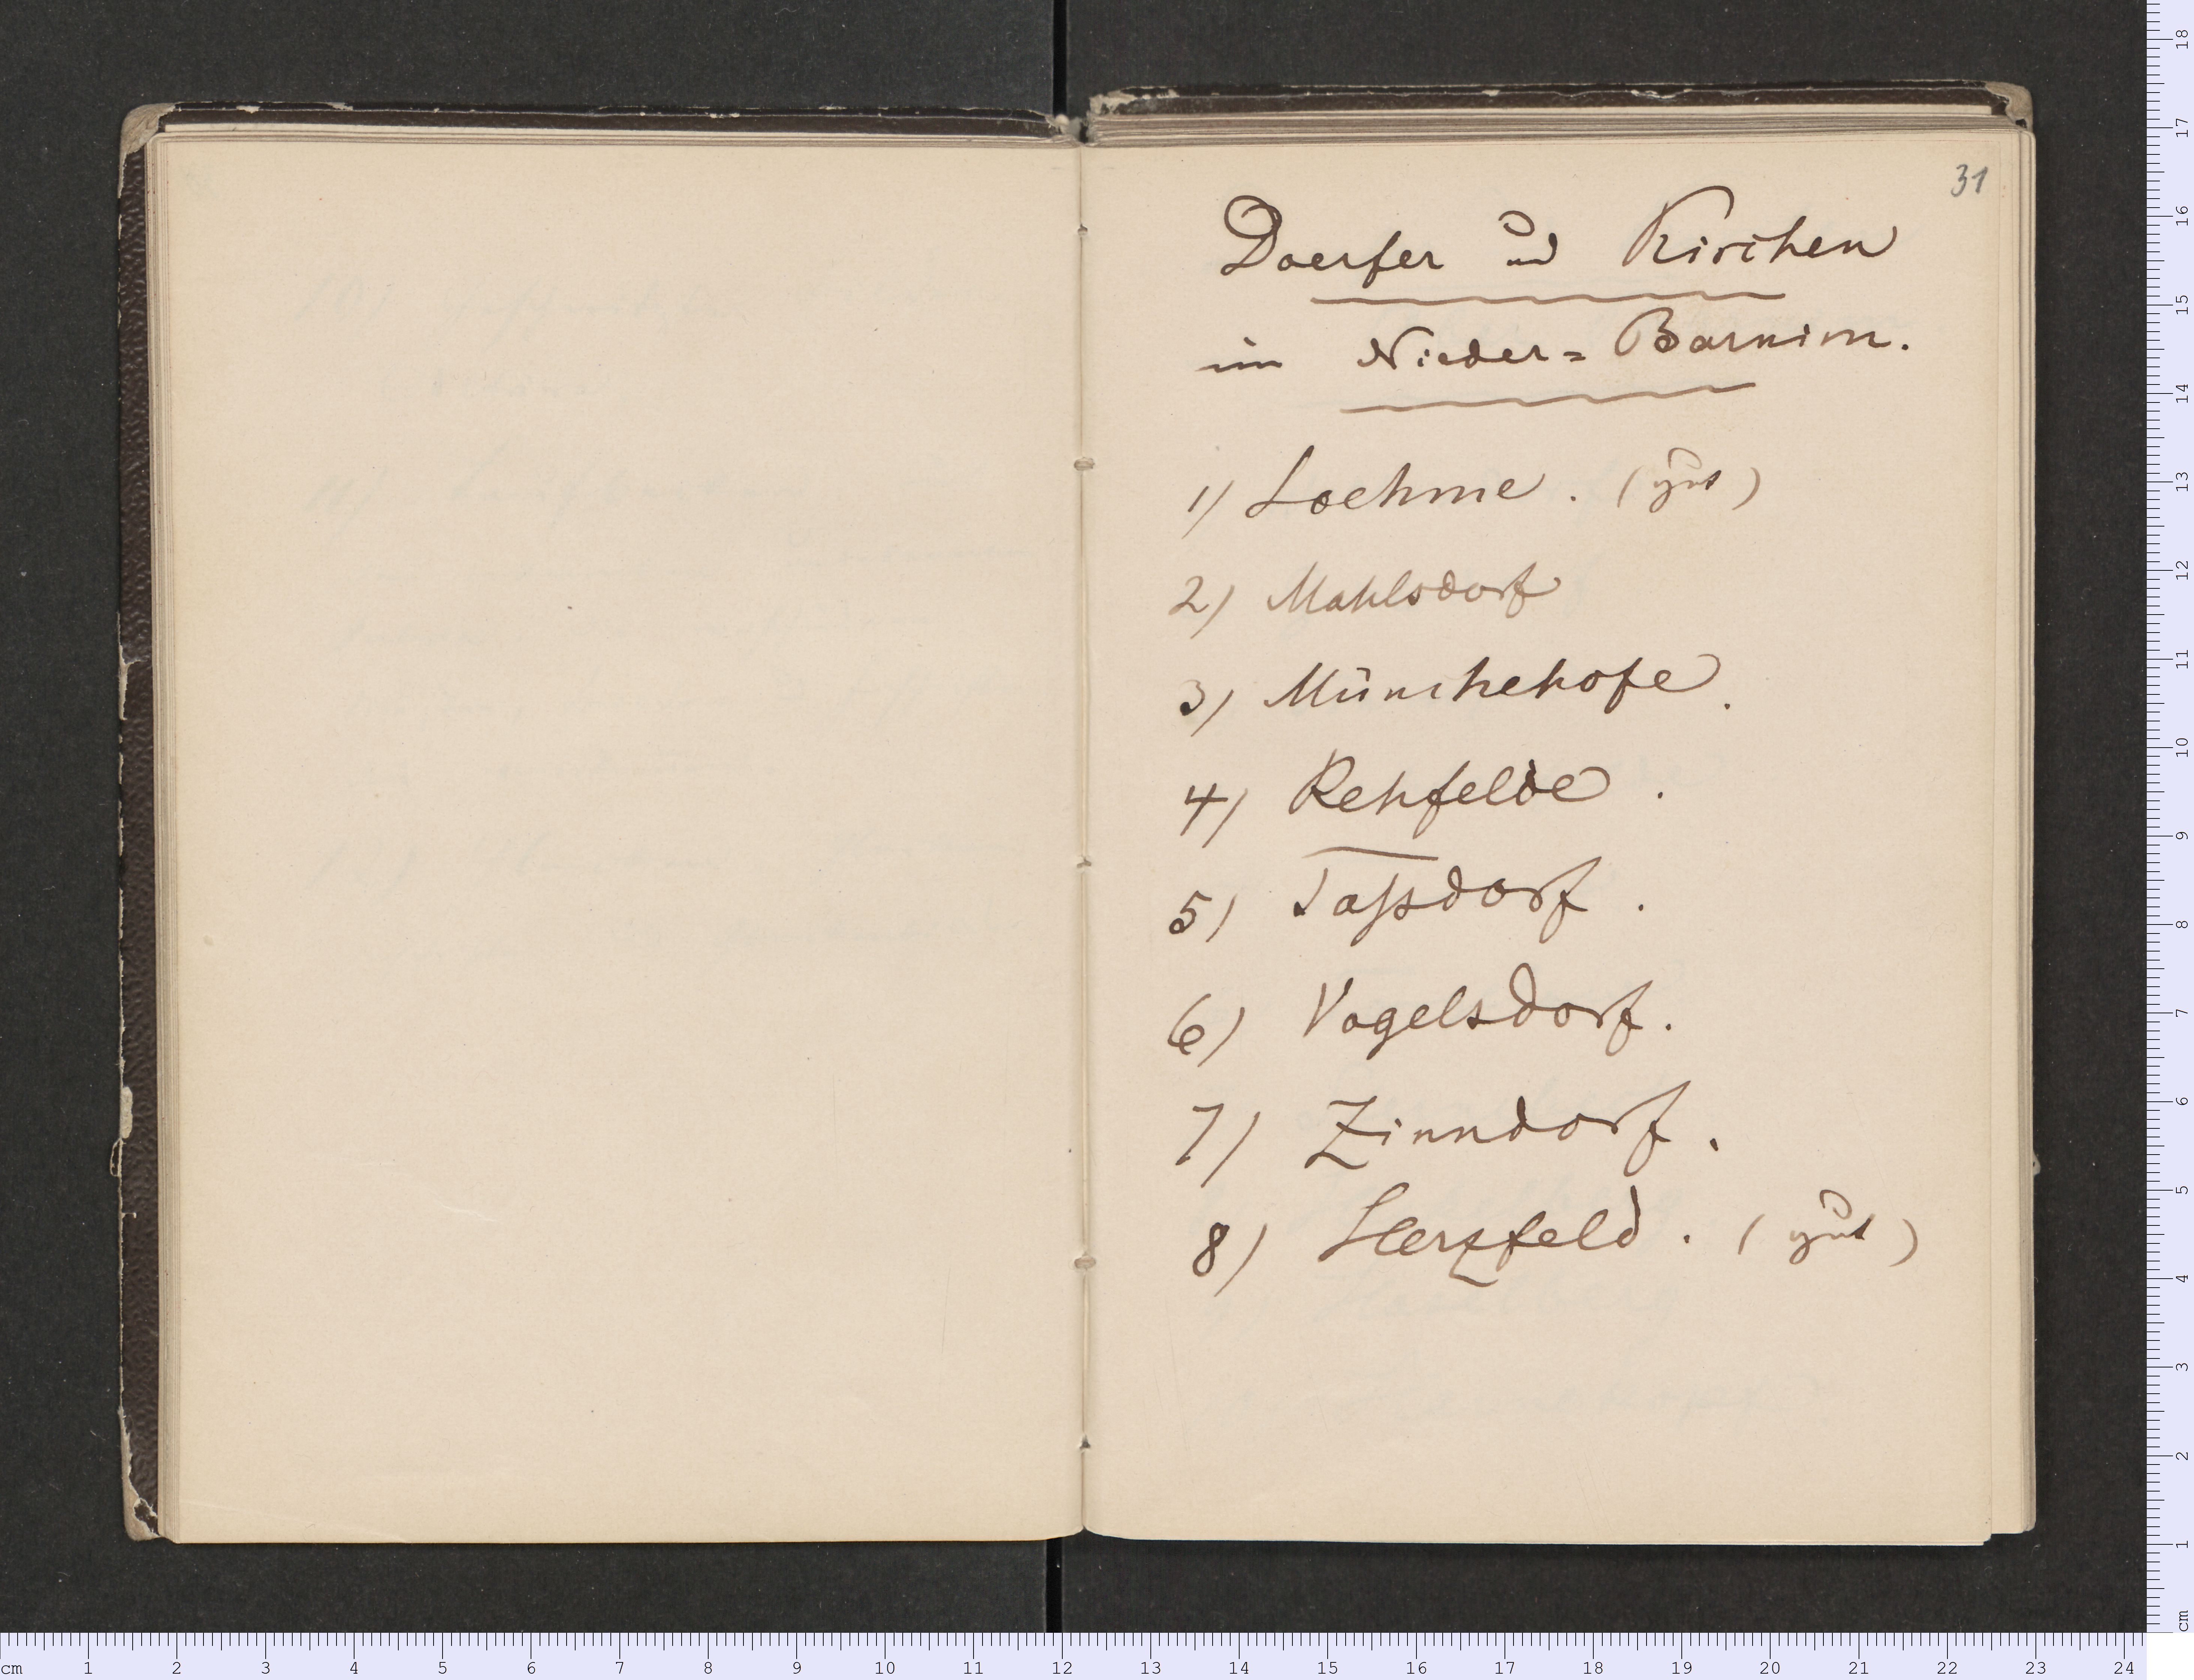 31
Doerfer und Kirchen
im Nieder=Barnim.
1) Loehme. (gut)
2) Mahlsdorf
3) Münchehofe.
4) Rehfelde.
5) Taßdorf.
6) Vogelsdorf.
7) Zinndorf.
8) Herzfeld. (gut)
18
17
16
15
14
13
12
11
10
9
8
7
6
5
4
3
2
1
cm
cm 1 2 3 4 5 6 7 8 9 10 11 12 13 14 15 16 17 18 19 20 21 22 23 24